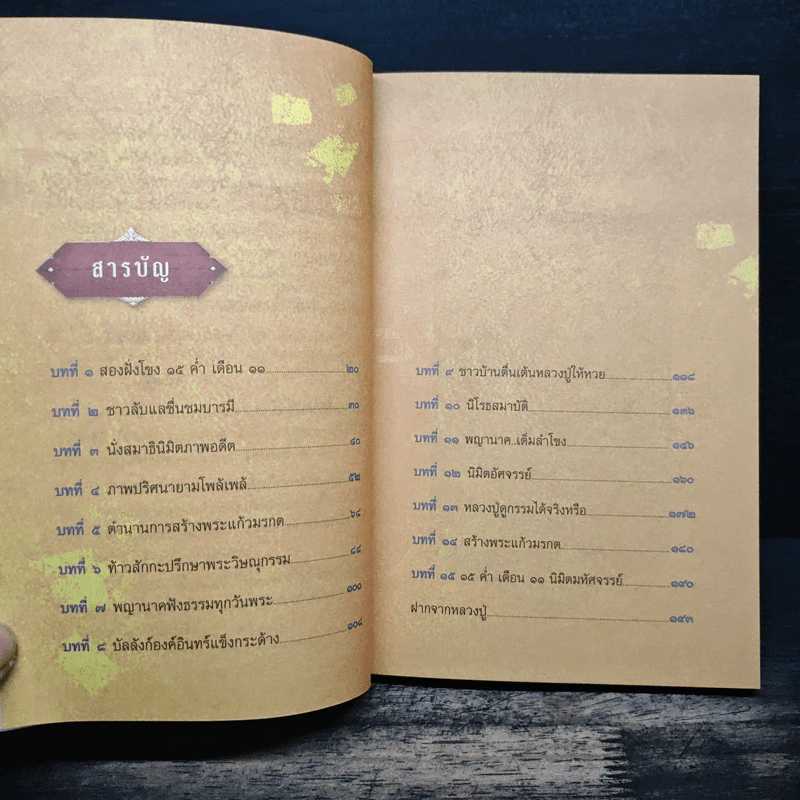 สารบัญ
บทที่ ๑ สองฝั่งโขง ๑๕ ค่ำ เดือน ๑๑ ๒๐
บทที่ ๒ ชาวลับแลชื่นชมบารมี ๓๐
บทที่ ๓ นั่งสมาธินิมิตภาพอดีต ๔๐
บทที่ ๔ ภาพปริศนายามโพล้เพล้ ๕๒
บทที่ ๕ ตำนานการสร้างพระแก้วมรกต ๖๔
บทที่ ๖ ท้าวสักกะปรึกษาพระวิษณุกรรม ๘๘
บทที่ ๗ พญานาคฟังธรรมทุกวันพระ ๑๐๐
บทที่ ๘ บัลลังก์องค์อินทร์แข็งกระด้าง ๑๐๘
บทที่ ๙ ชาวบ้านตื่นเต้นหลวงปู่ให้หวย ๑๑๘
บทที่ ๑๐ นิโรธสมาบัติ ๑๓๖
บทที่ ๑๑ พญานาค..เต็มลำโขง ๑๔๖
บทที่ ๑๒ นิมิตอัศจรรย์ ๑๖๐
บทที่ ๑๓ หลวงปู่ดูกรรมได้จริงหรือ ๑๗๒
บทที่ ๑๔ สร้างพระแก้วมรกต ๑๘๐
บทที่ ๑๕ ๑๕ ค่ำ เดือน ๑๑ นิมิตมหัศจรรย์ ๑๙๐
ฝากจากหลวงปู่ ๑๙๓